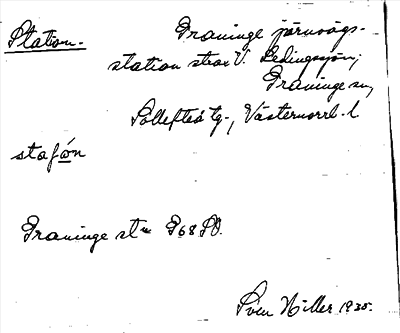 Station.
Graninge järnvägs-
station strax V. Ledingssjön,
Graninge sn,
Sollefteå tg., Västernorrl. l
stafón
Graninge stn G68 SO.
Sven Hiller 1935.